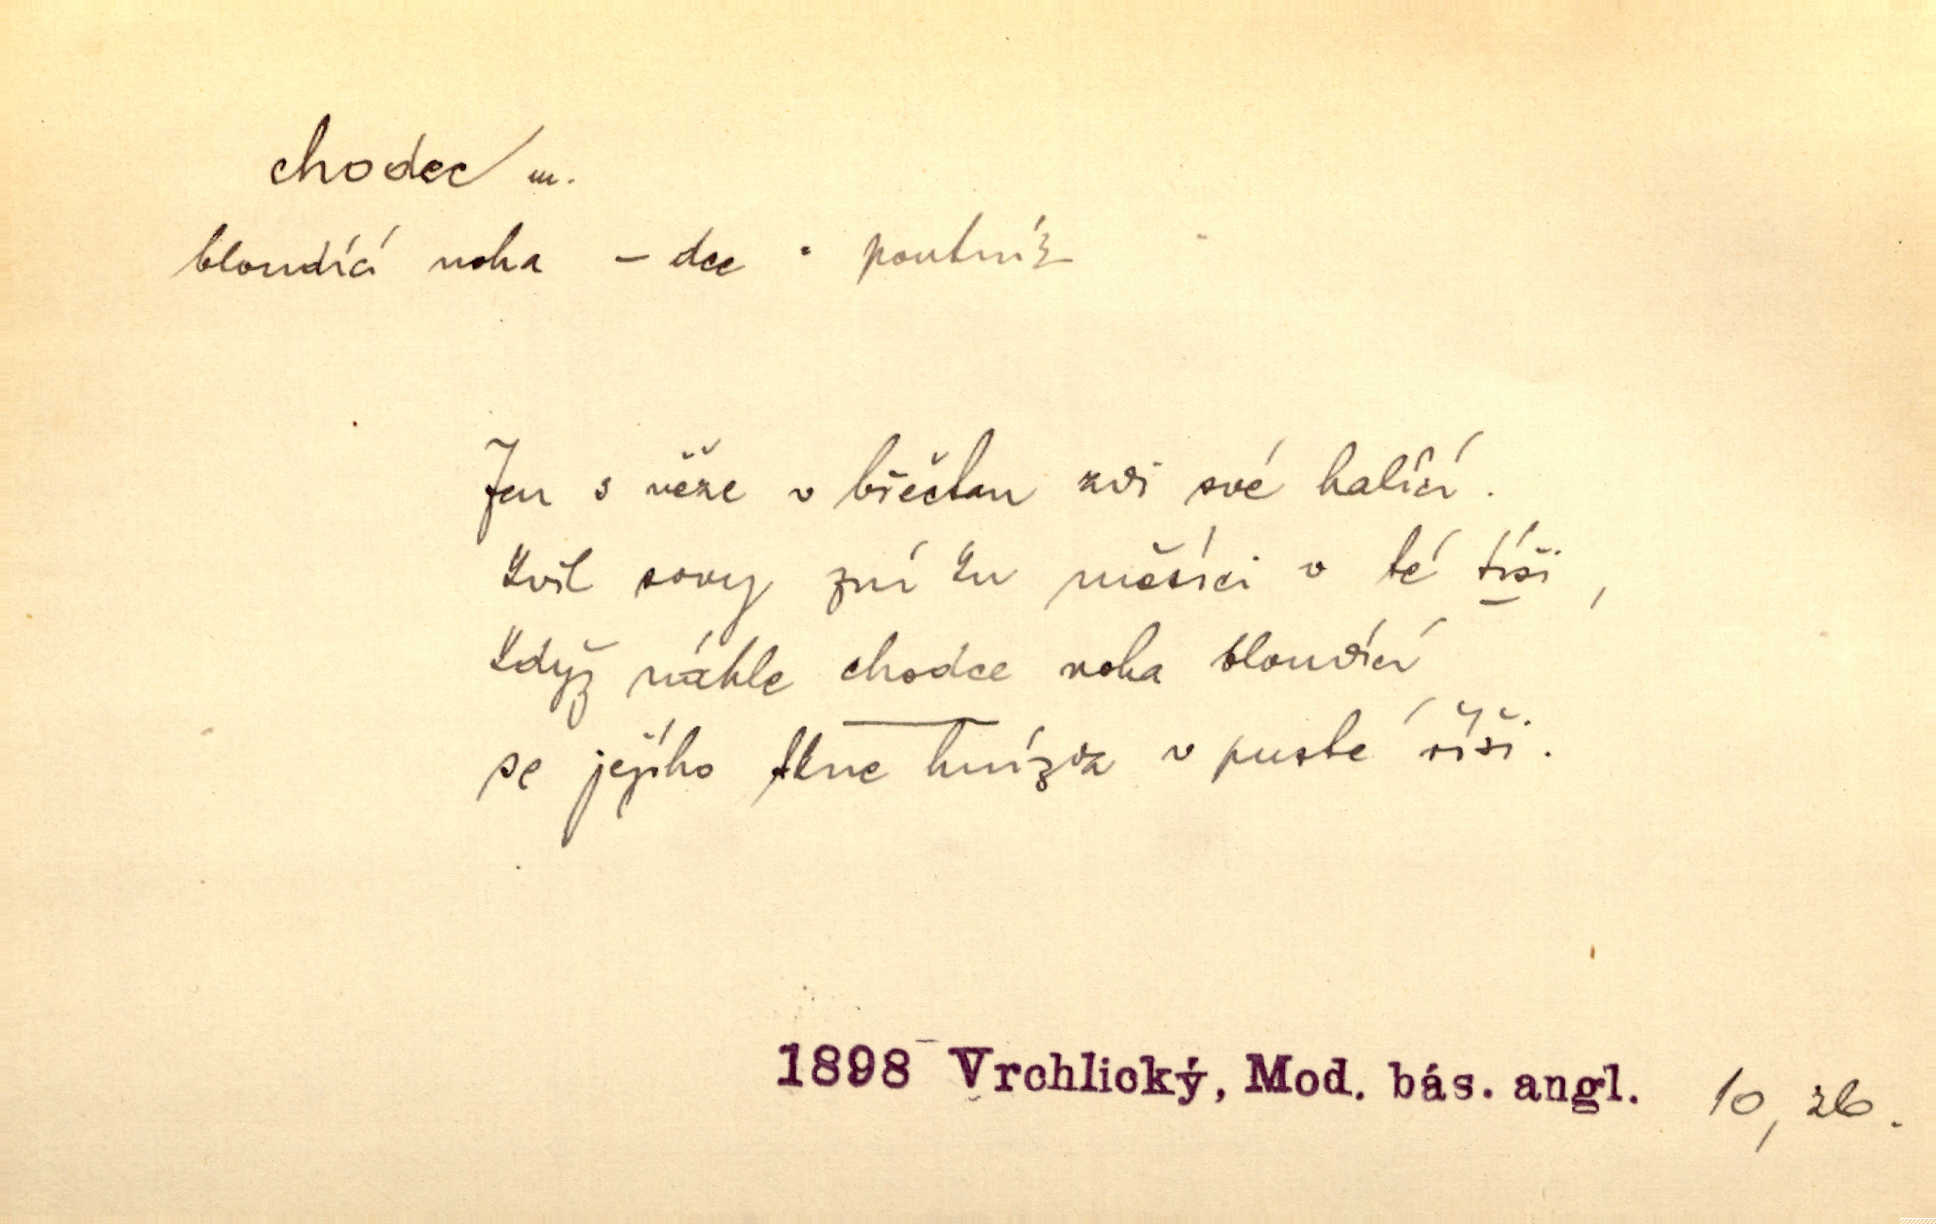 chodec m.
bloudící noha – dce · poutník
Jen s věže v břečtan zdi své halící.
kvil sovy zní ku měsíci v té tíši,
když náhle chodce noha bloudící
se jejího tkne hnízda v pusté říši.
1898 Vrchlický, Mod. bás. angl. 10, 26.